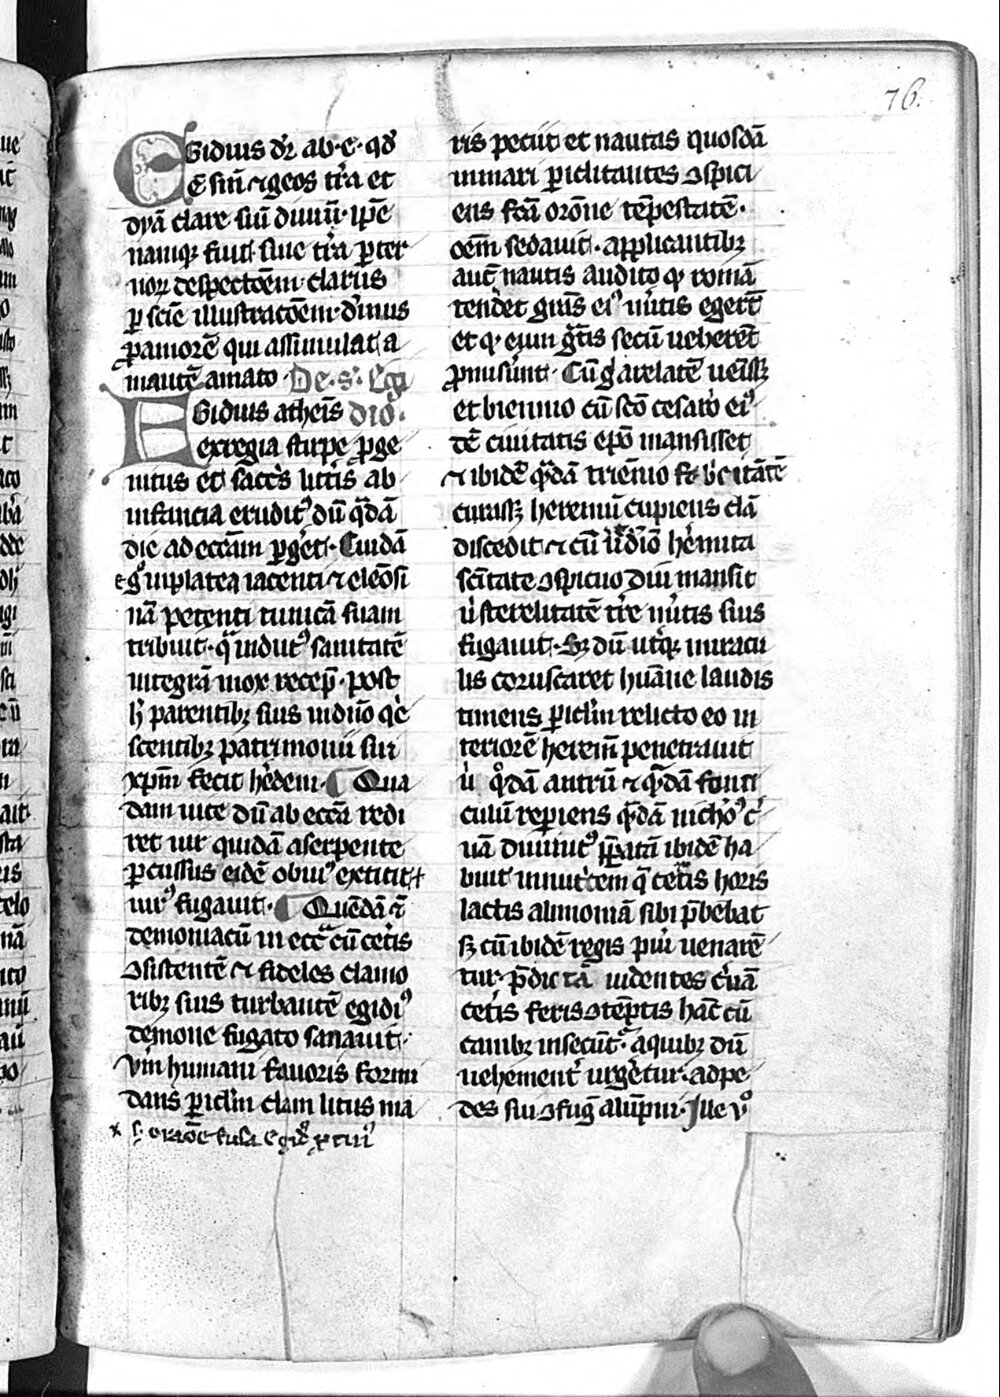 76.
Egidius dr̄ ab .e. qd̄
ē sin̄ ⁊ geos tr̄a et
dyā clare siū diuiū . ip̄e
namqꝫ fuit siue tr̄a ꝑ ter
noꝝ despectōem . clarus
ꝑ scīe illustracōem . diuinus
ꝓ amorē qui assimulat a
mantē amato . De . s . Egi
Egidius atheīs dio.
ex regia stirpe ꝓge
nitus et sacrīs litt̄is ab
infancia erudit᷒ dū q̄dā
die ad eccām ꝑget . Cuidā
egº in platea iacenti ⁊ eleōsi
nā petenti tunicā suam
tribuit . q̄ indut᷒ sanitatē
integrā mox recep̄ . post
h̄ parentibꝫ suis in dn̄o q̄e
scentibꝫ patrimonii sui
xp̄m fecit h̄edem . ¶ Qua
dam uice dū ab eccā redi
ret uir quidā a serpente
ꝑcussus eidē obui᷒ extitit +
uir᷒ fugauit . ¶ Quēdā ⁊
demoniacū in ecc̄a cū cet̄is
ꝯsistentē ⁊ fideles clamo
ribꝫ suis turbantē egidi᷒
demone fugato sanauit .
Vm̄ humani fauoris formi
dans ꝑicl̄m clam litus ma
x s. orat̄oe fusa egid᷒
ris peciit et nautas quosdā
in mari ꝑiclitantes ꝯspici
ens fc̄ā orōne tēpestatē .
oēm sedauit . applicantibꝫ
aut̄ nautis audito ꝙ romā
tendet gr̄as ei᷒ egerūt
et ꝙ eum gr̄tis secū ueherēt
ꝓmiserūt . Cū g̊ arelatē uenissꝫ
et biennio cū sc̄o cesario ei᷒
dē ciuitatis ep̄o mansisset
⁊ ibidē q̄dā triennio febricitātē
curassꝫ heremū cupiens clā
discedit ⁊ cū h̄emita
sc̄itate ꝯspicuo diu mansit
ū sterelitatē tr̄e suis
fugauit . Sꝫ dū utrqꝫ miracu
lis coruscaret humāne laudis
timens ꝑicl̄m relicto eo in
teriorē herem̄ penetrauit
ū qºdā antrū ⁊ q̄dā fonti
culū reꝑiens q̄dā
uā diuinit᷒ p̄patā ibidē ha
buit q̄ cet̄is horis
lactis alimoniā sibi p̄bebat
sꝫ cū ibidē regis pu̇i uenarē
tur . p̄dictā uidentes c̄uā
cet̄is feris ꝯtēptis hāc cū
canibꝫ insecūt᷒ . a quibꝫ dū
uehement̄ urgetur . ad pe
des sui ꝯfuḡ alūpni . Ille vº